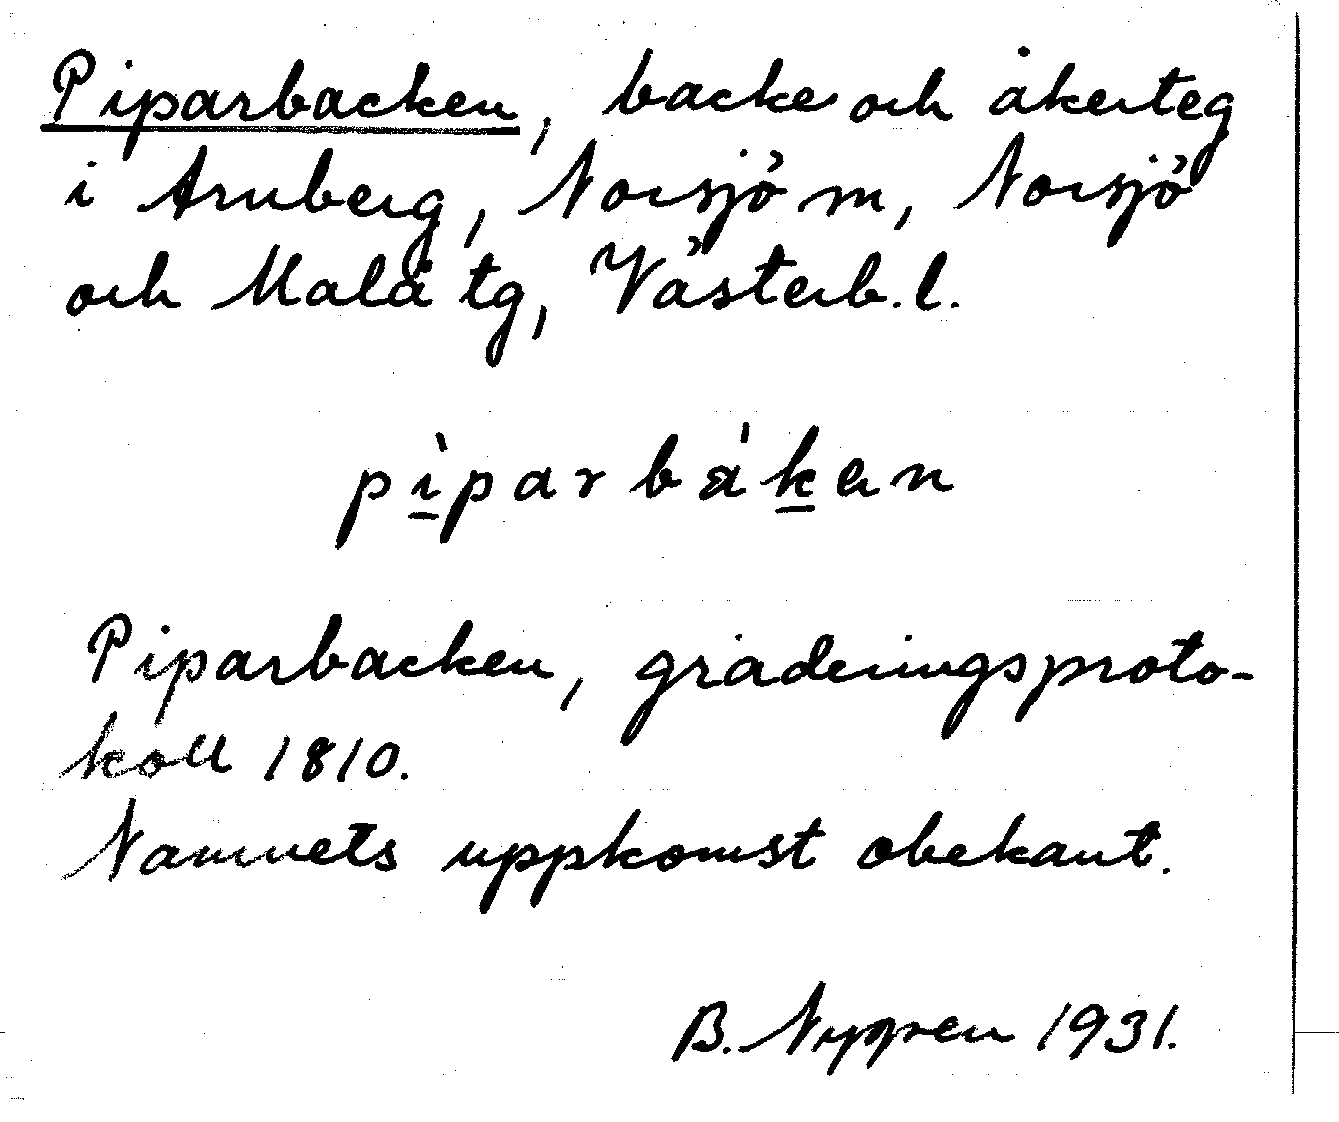 Piparbacken, backe och åkerteg
i Arnberg, Norsjö sn, Norsjö
och Malå tg, Västerb. l.
pìparbákan
Piparbacken, graderingsproto-
koll 1810.
Namnets uppkomst obekant.
B. Nygren 1931.